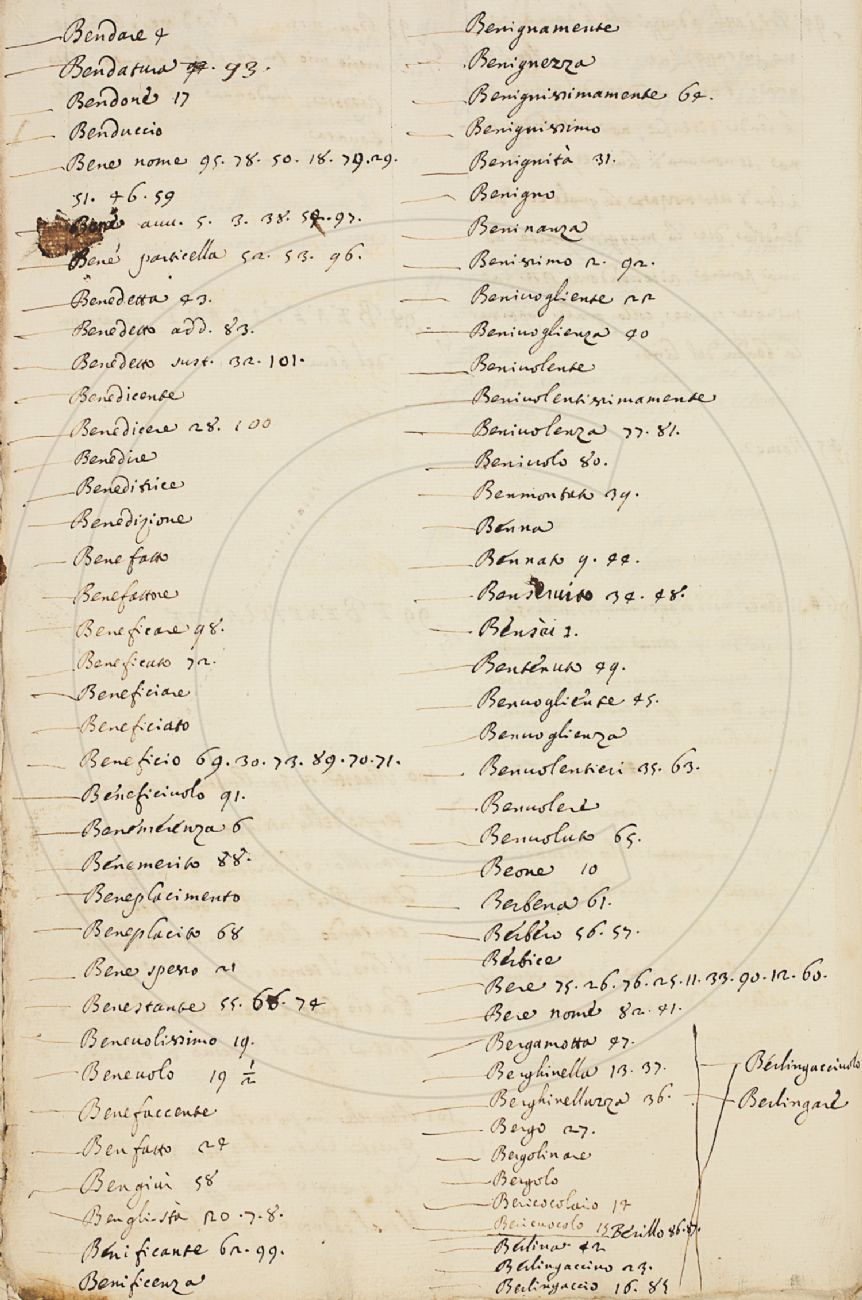 Bendare 4
Bendatura 93.
Bendone 17
Benduccio
Bene nome 95. 78. 50. 18. 79. 29.
51. 46. 59
Bene auu. 5. 3. 38. 54. 97.
Bene particella 52. 53. 96.
Benedetta 43.
Benedetto add. 83.
Benedetto sust. 32. 101.
Benedicente
Benedicere 28. 100
Benedire
Beneditrice
Benedizione
Benefatto
Benefattore
Beneficare 98.
Beneficato 72.
Beneficiare
Beneficiato
Beneficio 69. 30. 73. 89. 70. 71.
Beneficiuolo 91.
Benemerenza 6
Benemerito 88.
Beneplacimento
Beneplacito 68
Bene spesso 21
Benestante 55. 66. 74
Beneuolissimo 19.
Beneuolo 19 1/2
Benefaccente
Benfatto 24
Bengiui 58
Benglistà 20. 7. 8.
Benificante 62. 99.
Benificenza
Benignamente
Benignezza
Benignissimamente 64.
Benignissimo
Benignità 31.
Benigno
Beninanza
Benissimo 2. 92.
Beniuogliente 22
Beniuoglienza 40
Beniuolente
Beniuolentissimamente
Beniuolenza 77. 81.
Beniuolo 80.
Benmontato 39.
Benna
Bennato 9. 44.
Benseruito 34. 48.
Bensai 1.
Bentenuto 49.
Benuogliente 45.
Benuoglienza
Benuolentieri 35. 63.
Benuolere
Benuoluto 65.
Beone 10
Berbena 61.
Berbero 56. 57.
Berbice
Bere 75. 26. 76. 25. 11. 33. 90. 12. 60.
Bere nome 82. 41.
Bergamotta 47.
Berghinella 13. 37.
Berghinelluzza 36.
Bergo 27.
Bergolinare
Bergolo
Bericocolaio 14
Bericuocolo 15 Berillo 86. 87.
Berlina 42
Berlingaccino 23.
Berlingaccio 16. 85
Berlingacciuolo
Berlingare